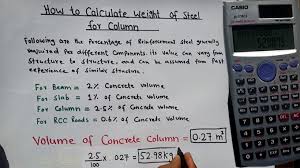 How to Calculate Weight of Steel
for Column
Following are the Percentage of Reinforcement Steel generally
required for different Components, its value can vary from
Structure to Structure, and can be assumed from Past
experience of Similar Structure.
For Beam = 2% Concrete Volume
For Slab = 1% of Concrete Volume
For Column = 2.5% of Concrete Volume
For RCC Roads = 0.6% of Concrete Volume
Volume of Concrete Column = 0.27 m³
2.5/100 × 0.27 = 52.98 kg
CASIO